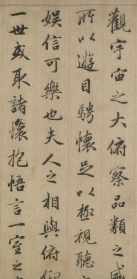 觀宇宙之大俯察品類之
所以遊目騁懷足以極視聽
娛信可樂也夫人之相與俯仰
一世或取諸懷抱悟言一室之